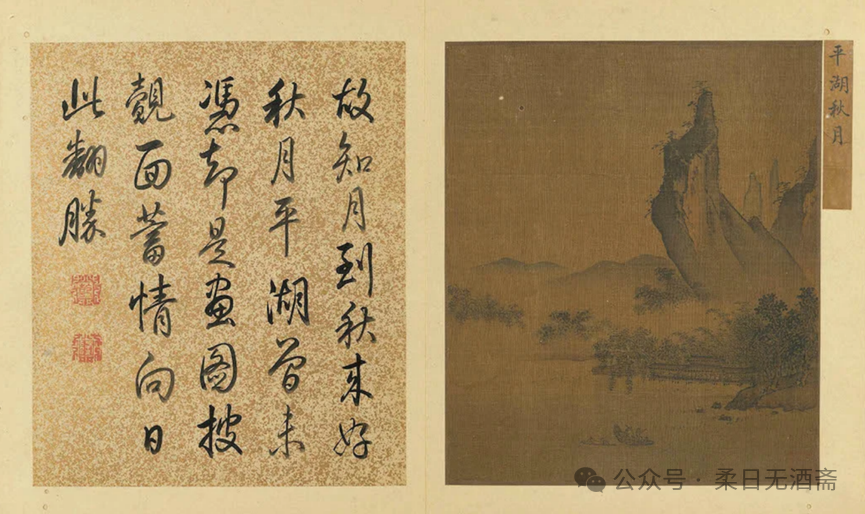 平湖秋月
故知月到秋來好
秋月平湖曾未
憑却是畫圖披
覿面蓄情向日
此翻勝
公众号 · 柔日无酒斋